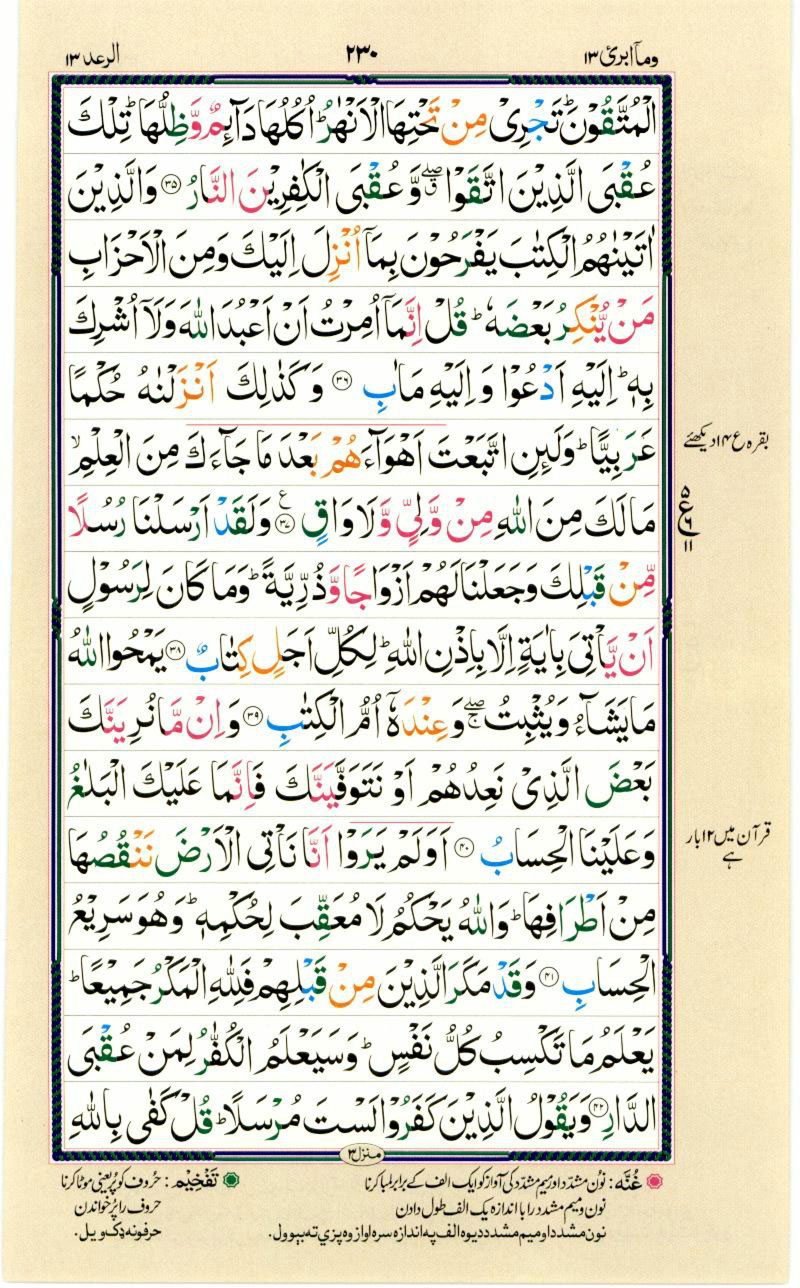 وماۤابرئ ۱۳
۲۳۰
الرعد ۱۳
الْمُتَّقُوْنَ ؕ تَجْرِیْ مِنْ تَحْتِهَا الْاَنْهٰرُ ؕ اُكُلُهَا دَآىِٕمٌ وَّظِلُّهَا ؕ تِلْكَ
عُقْبَی الَّذِیْنَ اتَّقَوْا ۖق وَّعُقْبَی الْكٰفِرِیْنَ النَّارُ ﴿۳۵﴾ وَالَّذِیْنَ
اٰتَیْنٰهُمُ الْكِتٰبَ یَفْرَحُوْنَ بِمَاۤ اُنْزِلَ اِلَیْكَ وَمِنَ الْاَحْزَابِ
مَنْ یُّنْكِرُ بَعْضَهٗ ؕ قُلْ اِنَّمَاۤ اُمِرْتُ اَنْ اَعْبُدَ اللّٰهَ وَلَاۤ اُشْرِكَ
بِهٖ ؕ اِلَیْهِ اَدْعُوْا وَ اِلَیْهِ مَاٰبِ ﴿۳۶﴾ وَ كَذٰلِكَ اَنْزَلْنٰهُ حُكْمًا
عَرَبِیًّا ؕ وَلَىِٕنِ اتَّبَعْتَ اَهْوَآءَهُمْ بَعْدَ مَا جَآءَكَ مِنَ الْعِلْمِ ۙ
بقرہ ع ۱۴ دیکھئے
مَا لَكَ مِنَ اللّٰهِ مِنْ وَّلِیٍّ وَّلَا وَاقٍ ﴿۳۷﴾ ع وَلَقَدْ اَرْسَلْنَا رُسُلًا
۵
ع
۶
۱۱
مِّنْ قَبْلِكَ وَجَعَلْنَا لَهُمْ اَزْوَاجًا وَّذُرِّیَّةً ؕ وَمَا كَانَ لِرَسُوْلٍ
اَنْ یَّاْتِیَ بِاٰیَةٍ اِلَّا بِاِذْنِ اللّٰهِ ؕ لِكُلِّ اَجَلٍ كِتَابٌ ﴿۳۸﴾ یَمْحُوا اللّٰهُ
مَا یَشَآءُ وَیُثْبِتُ ۖج وَعِنْدَهٗۤ اُمُّ الْكِتٰبِ ﴿۳۹﴾ وَاِنْ مَّا نُرِیَنَّكَ
بَعْضَ الَّذِیْ نَعِدُهُمْ اَوْ نَتَوَفَّیَنَّكَ فَاِنَّمَا عَلَیْكَ الْبَلٰغُ
وَعَلَیْنَا الْحِسَابُ ﴿۴۰﴾ اَوَلَمْ یَرَوْا اَنَّا نَاْتِی الْاَرْضَ نَنْقُصُهَا
قرآن میں ۱۲ بار
ہے
مِنْ اَطْرَافِهَا ؕ وَاللّٰهُ یَحْكُمُ لَا مُعَقِّبَ لِحُكْمِهٖ ؕ وَهُوَ سَرِیْعُ
الْحِسَابِ ﴿۴۱﴾ وَقَدْ مَكَرَ الَّذِیْنَ مِنْ قَبْلِهِمْ فَلِلّٰهِ الْمَكْرُ جَمِیْعًا ؕ
یَعْلَمُ مَا تَكْسِبُ كُلُّ نَفْسٍ ؕ وَسَیَعْلَمُ الْكُفّٰرُ لِمَنْ عُقْبَی
الدَّارِ ﴿۴۲﴾ وَیَقُوْلُ الَّذِیْنَ كَفَرُوْا لَسْتَ مُرْسَلًا ؕ قُلْ كَفٰی بِاللّٰهِ
منزل ۳
غُنَّه: نُون مشدّد اور میم مشدّد کی آواز کو ایک الف کے برابر لمبا کرنا
نون و میم مشدد را با اندازہ یک الف طول دادن
نون مشدد او میم مشدد د یوه الف په اندازه سره اواز وه پزې ته بېوول.
تَفْخِیْم: حُروف کو پُر یعنی موٹا کرنا
حروف را پُر خواندن
حرفونه ډک ویل.